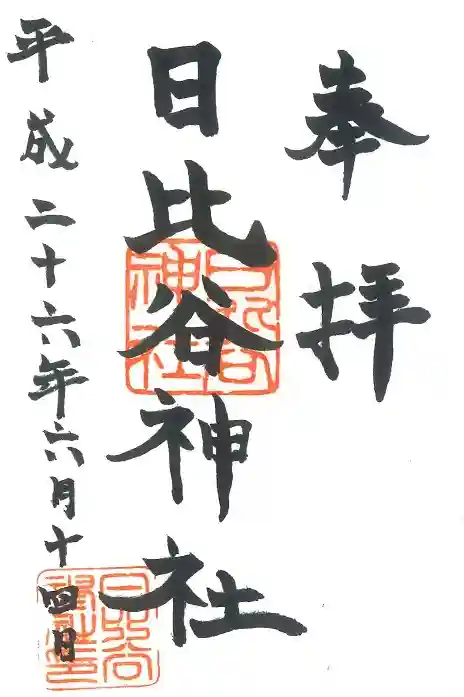 奉拝
日比谷神社
日比谷神社
平成二十六年六月十四日